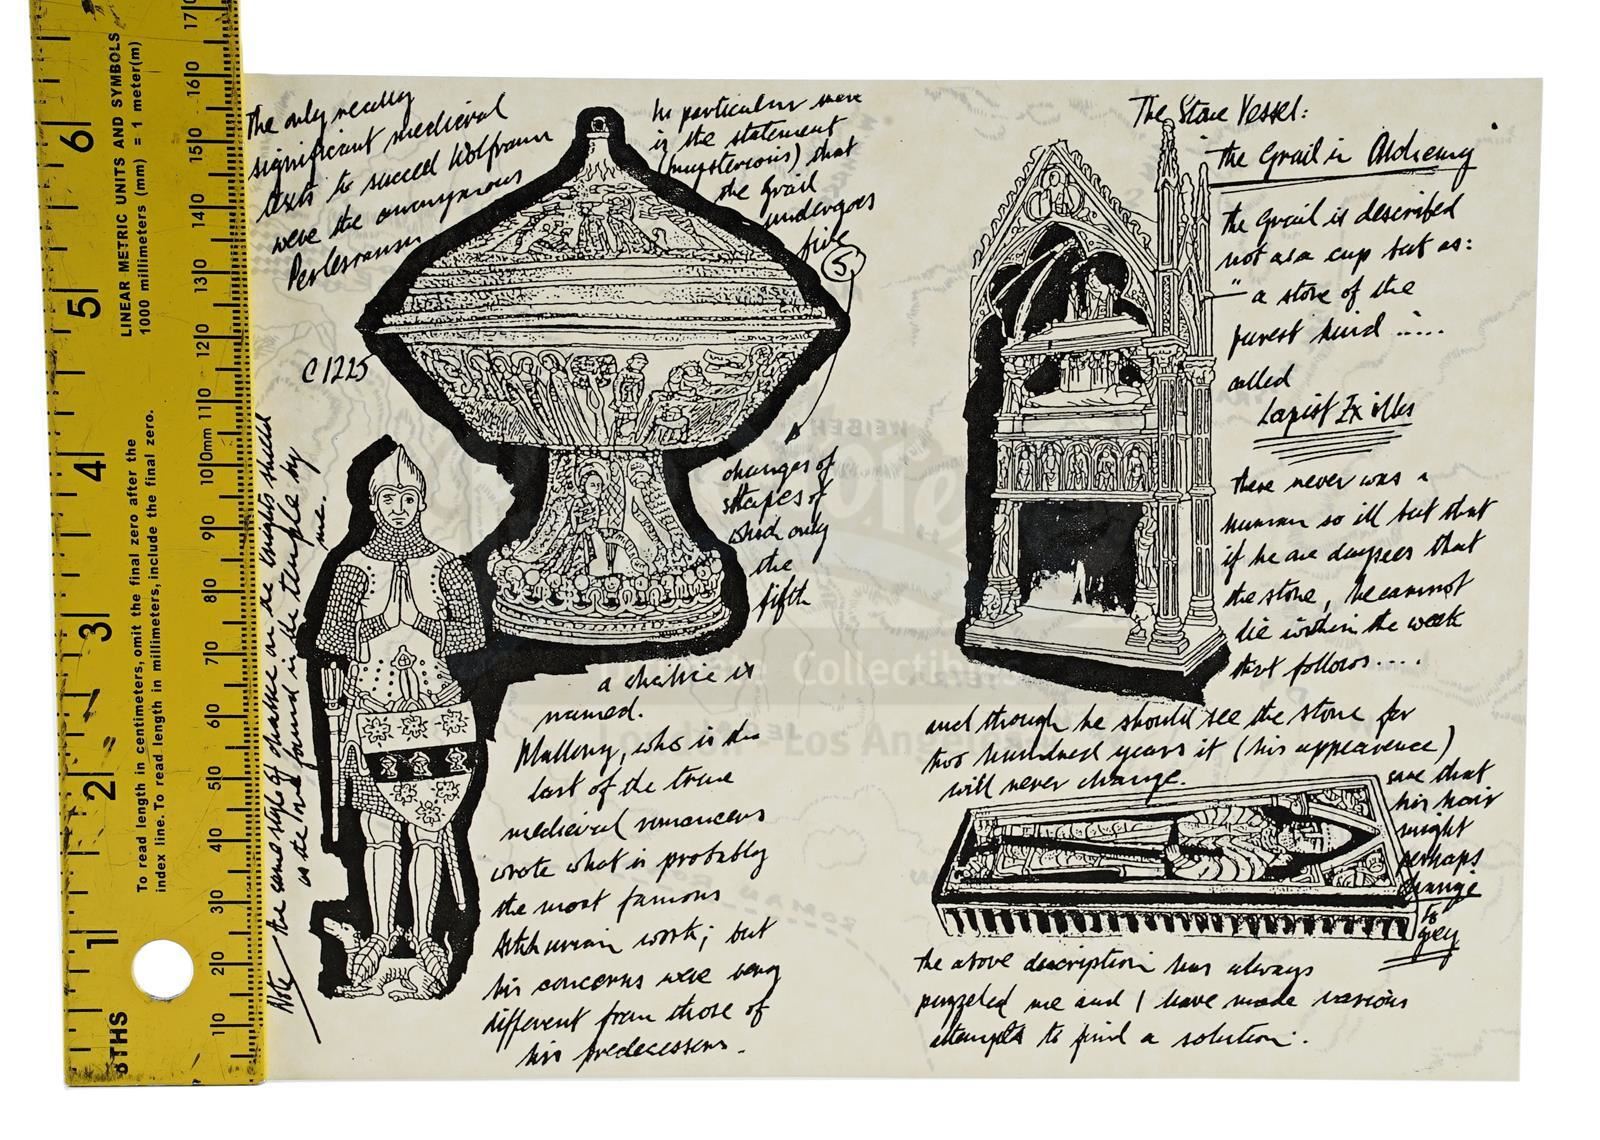 The only really
significant medieval
texts to succeed Wolfram
were the anonymous
Perlesvaus
C1225
In particular were
is the statement
(mysterious) that
the Grail
undergoes
five
5
changes of
shapes of
which only
the
fifth
a chalice is
named.
Mallory, who is the
last of the true
medieval romancers
wrote what is probably
the most famous
Arthurian work; but
his concerns were very
different from those of
his predecessors.
Note the same style of chalice on the knights shield
as the one found in the temple by
me.
The Stone Vessel:
the Grail in Alchemy
the Grail is described
not as a cup but as:
" a stone of the
purest kind .....
called
Lapist Ex illis
there never was a
human so ill but that
if he one day sees that
the stone, he cannot
die within the week
that follows....
and though he should see the stone for
two hundred years it (his appearence)
will never change.
save that
his hair
might
perhaps
change
to
grey
the above description has always
puzzled me and I have made various
attempts to find a solution.
Collectibles
Los An
LINEAR METRIC UNITS AND SYMBOLS
1000 millimeters (mm) = 1 meter(m)
To read length in centimeters, omit the final zero after the
index line. To read length in millimeters, include the final zero.
8THS
1 2 3 4 5 6
10 20 30 40 50 60 70 80 90 100mm 110 120 130 140 150 160 170